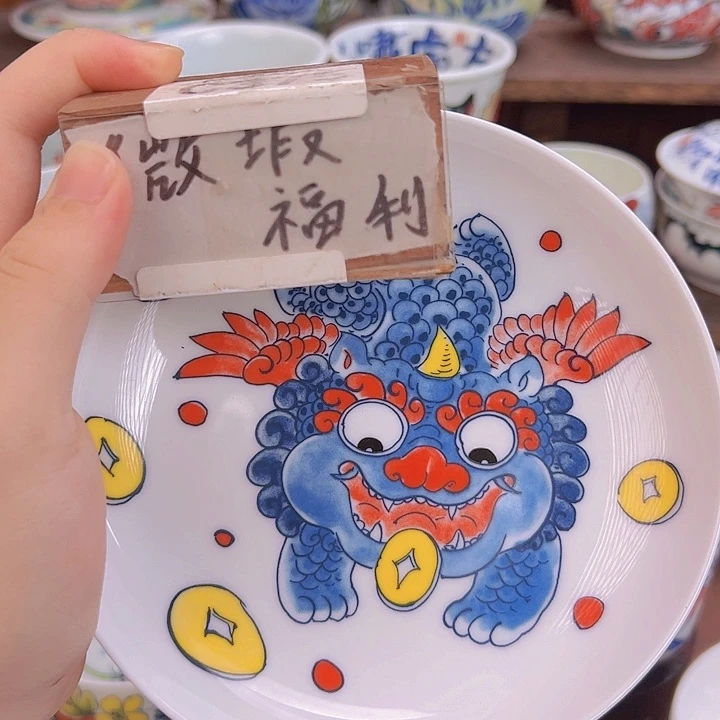 微瑕
福利